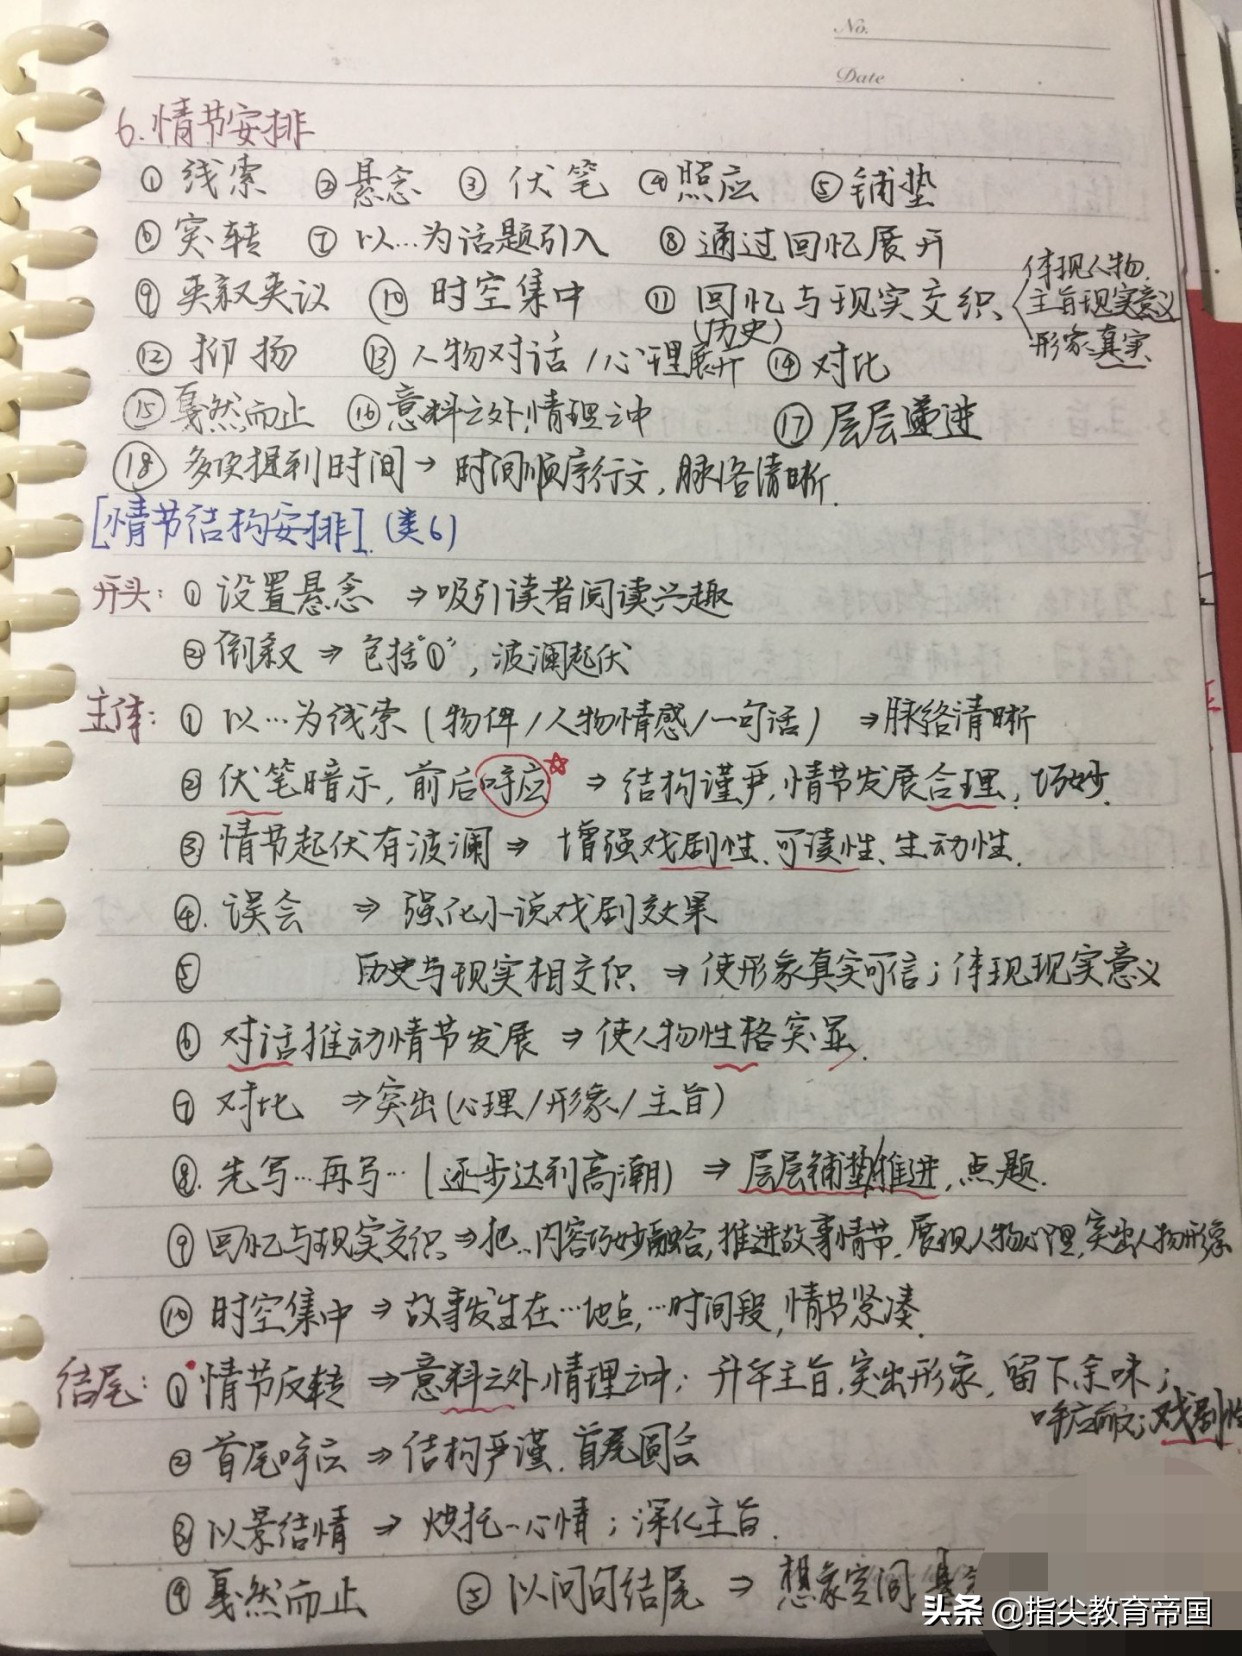 No.
Date
6.情节安排
① 线索 ② 悬念 ③ 伏笔 ④ 照应 ⑤ 铺垫
⑥ 突转 ⑦ 以…为话题引入 ⑧ 通过回忆展开
⑨ 夹叙夹议 ⑩ 时空集中 ⑪ 回忆与现实交织
(历史)
体现人物.
主旨现实意义
形象真实
⑫ 抑扬 ⑬ 人物对话/心理展开 ⑭ 对比
⑮ 戛然而止 ⑯ 意料之外,情理之中 ⑰ 层层递进
⑱ 多次提到时间→时间顺序行文,脉络清晰.
[情节结构安排].(类6)
开头: ① 设置悬念 ⇒吸引读者阅读兴趣
② 倒叙 ⇒ 包括"①",波澜起伏
主体: ① 以…为线索(物件/人物情感/一句话) ⇒脉络清晰
② 伏笔暗示,前后呼应☆ ⇒ 结构谨严,情节发展合理,巧妙.
③ 情节起伏有波澜⇒ 增强戏剧性、可读性、生动性.
④. 误会 ⇒ 强化小说戏剧效果
⑤ 历史与现实相交织 ⇒使形象真实可信;体现现实意义
⑥ 对话推动情节发展 ⇒ 使人物性格突显.
⑦ 对比 ⇒突出(心理/形象/主旨)
⑧. 先写…再写…(逐步达到高潮) ⇒ 层层铺垫推进,点题.
⑨ 回忆与现实交织⇒把…内容巧妙融合,推进故事情节,展现人物心理,突出人物形象
⑩ 时空集中 ⇒故事发生在…地点,…时间段,情节紧凑.
结尾: ① 情节反转 ⇒意料之外,情理之中; 升华主旨,突出形象,留下余味;
呼应前文;戏剧性
② 首尾呼应 ⇒结构严谨.首尾圆合
③ 以景结情 ⇒ 烘托…心情;深化主旨.
④ 戛然而止 ⑤ 以问句结尾 ⇒ 想象空间,
头条 @指尖教育帝国